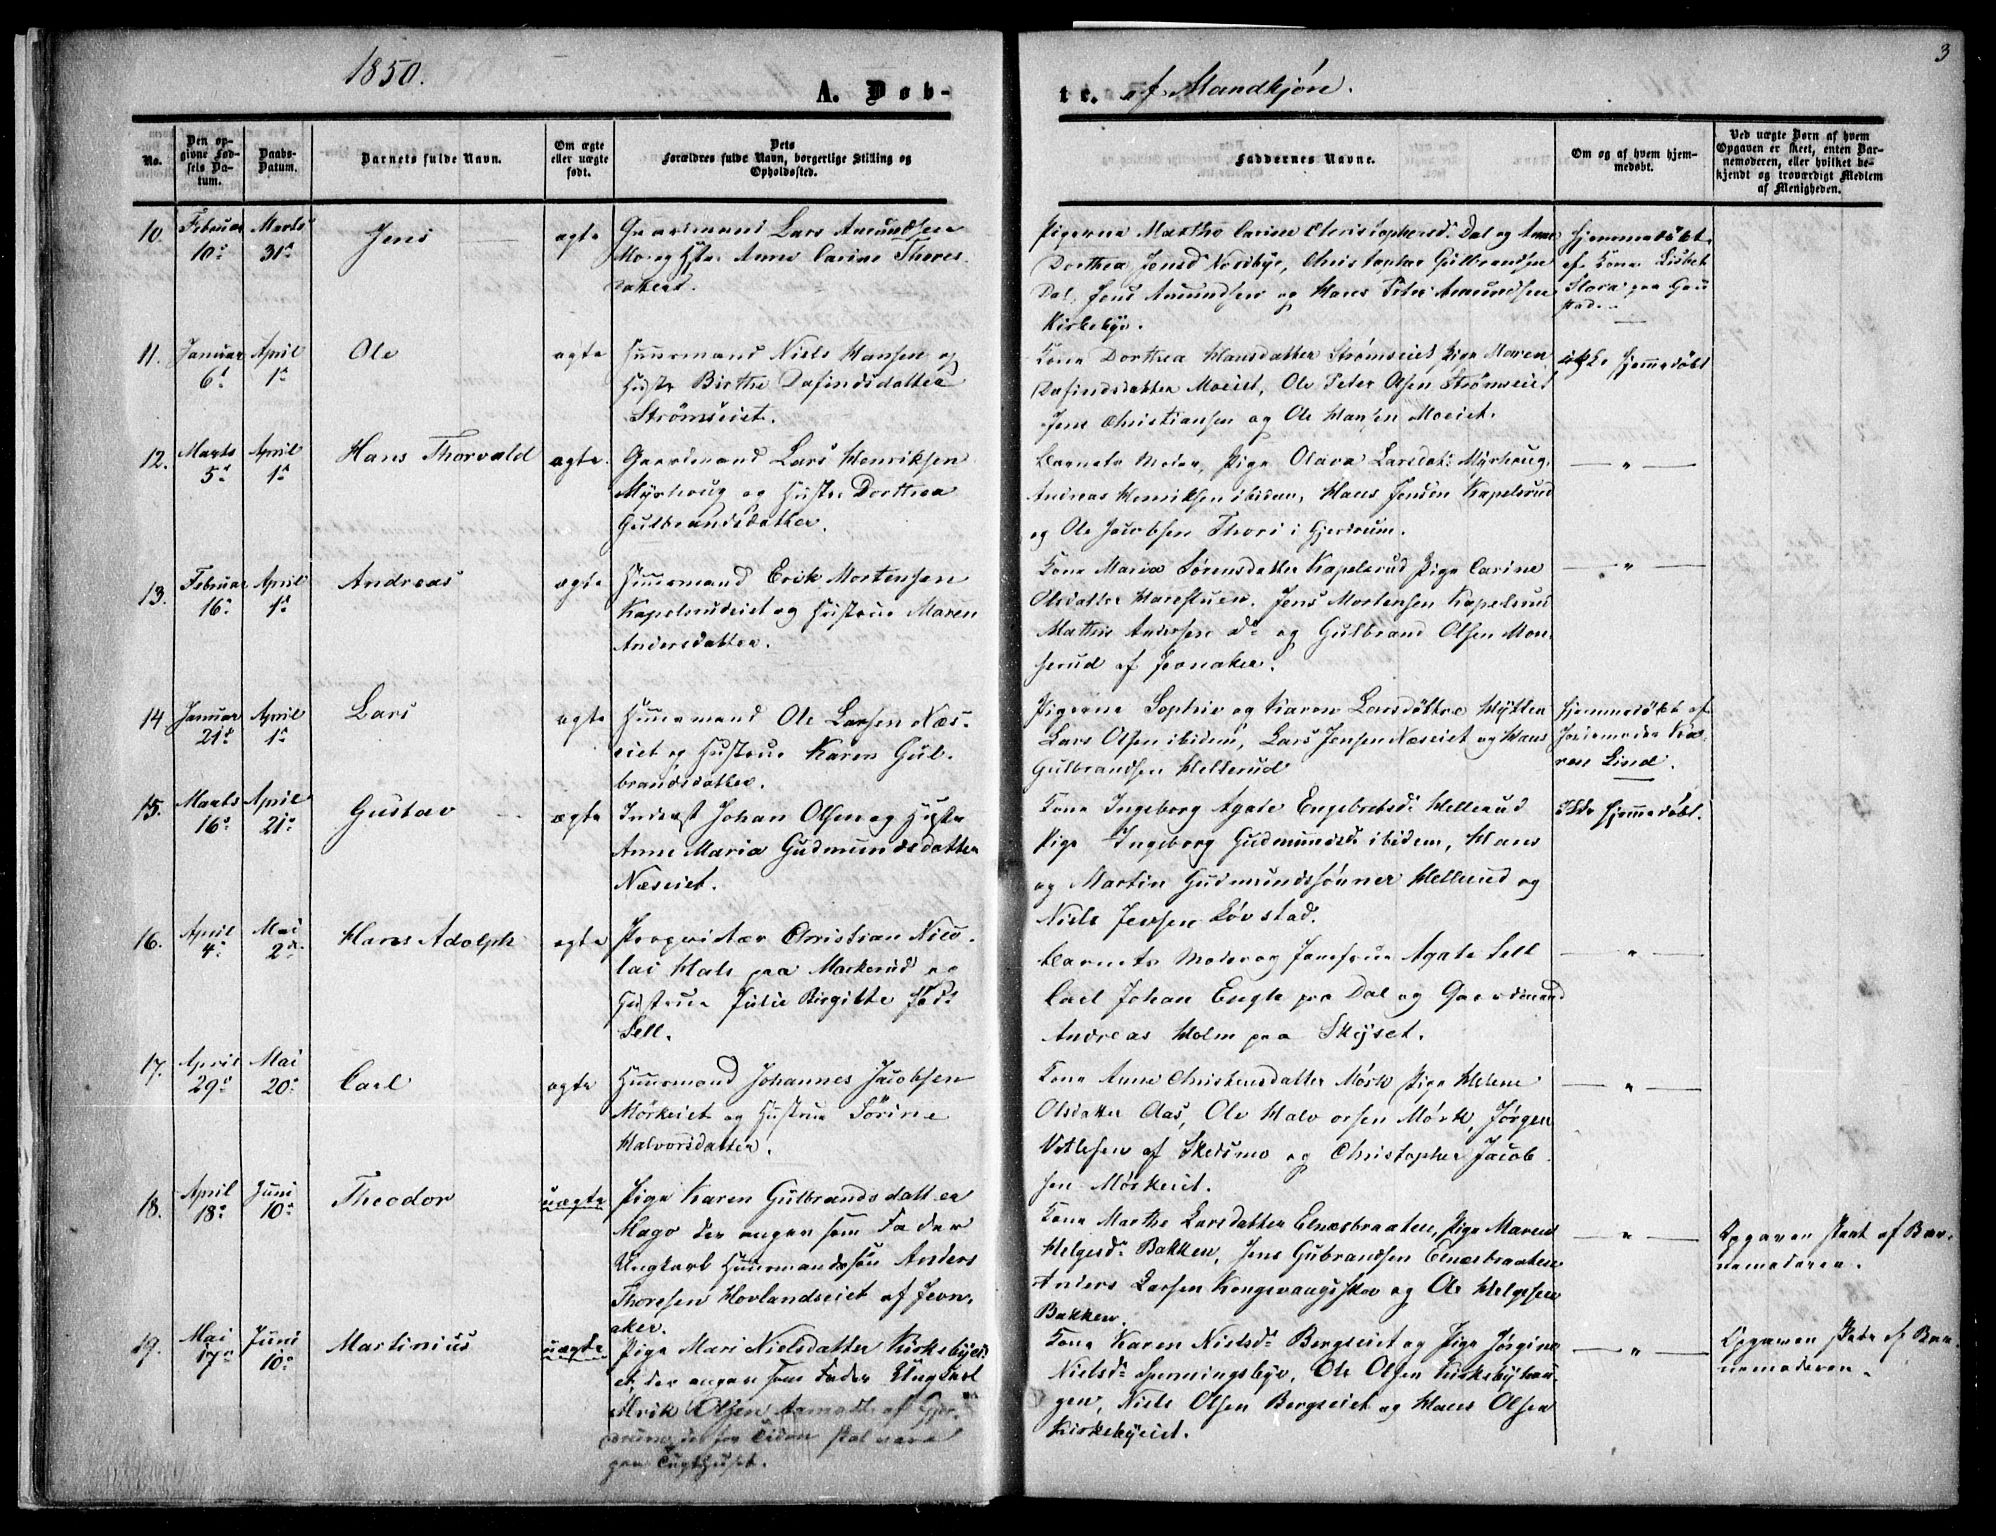 1850.
A. Døb-
te. af Mandkjøn.
3
No.
Den op-
givne Fød-
sels Da-
tum.
Daabs-
Datum.
Barnets fulde Navn.
Om ægte
eller uægte
født.
Dets
Forældres fulde Navn, borgerlige Stilling og
Opholdssted.
Faddernes Navne.
Om og af hvem hjem-
medøbt.
Ved uægte Børn af hvem
Opgaven er skeet, enten Bar-
nemoderen, eller hvilket be-
kjendt og troværdigt Medlem
af Menigheden.
10. Februar Marts Jens ægte Gaardmand Lars Amundsen
10de 31te Mo og Hstr Anne Carine Theres-
datter.
Pigerne Marthe Carine Christophersd. Dal og Anne
Dorthea Jensd Nordbye, Christopher Gulbrandsen
Dal, Jens Amundsen og Hans Peter Amundsen
Kirkebye.
Hjemmedøbt
af Kone Lisbet
Slora paa Gau
stad.
11. Januar April Ole ægte Huusmand Niels Hansen og
6te 1te Hustr Birthe Dafindsdatter
Strømseiet.
Kone Dorthea Hansdatter Strømseiet Pige Maren
Dafindsdatter Moeiet, Ole Peter Olsen Strømseiet
Jens Christiansen og Ole Hansen Moeiet.
ikke hjemedøbt
12. Marts April Hans Thorvald ægte. Gaardmand Lars Henriksen
5te 1te Myrhaug og Hustru Dorthea
Gulbrandsdatter.
Barnets Moder, Pige Olava Larsdatr Myrhaug,
Andreas Henriksen ibidem, Hans Jensen Kapelsrud
og Ole Jacobsen Thori i Gjerdrum.
— " —
13. Februar April Andreas ægte Huusmand Erik Mortensen
16. 1te Kapelsrudeiet og Hustrue Maren
Andersdatter.
Kone Maria Sørensdatter Kapelsrud Pige Carine
Olsdatter Harestuen. Jens Mortensen Kapelsrud
Mathis Andersen do og Gulbrand Olsen Mon-
serud af Jevnaker.
— " —
14 Januar April Lars ægte Huusmand Ole Larsen Næs-
21de 1te eiet og Hustrue Karen Gul-
brandsdatter.
Pigerne Sophie og Karen Larsdøttre Hytten
Lars Olsen ibidem, Lars Jensen Næseiet og Hans
Gulbrandsen Hellerud
Hjemmedøbt af
Jordemoder Ka-
ren Lind.
15. Marts April Gustav ægte Inderst Johan Olsen og Hustr
16. 21. Anne Maria Gudmundsdatter
Næseiet.
Kone Ingeborg Agate Engebretsd. Hellerud
Pige Ingeborg Gudmundsd. ibidem, Hans
og Martin Gudmundssønner Hellerud og
Niels Jensen Løvstad.
Ikke hjemmedøbt.
16. April Mai Hans Adolph ægte Proprietær Christian Nico-
4. 2den lai Hals paa Markerud og
Hustrue Julie Birgitte fød.
Sell.
Barnets Moder og Jomfrue Agate Sell
Carl Johan Engh paa Dal og Gaardmand
Andreas Holm paa Skøyset.
— " —
17. April Mai Carl ægte Huusmand Johannes Jacobsen
29. 20. Mørkeiet og Hustrue Sørine
Halvorsdatter.
Kone Anne Christensdatter Mørk, Pige Helene
Olsdatter Aas, Ole Halvorsen Mørk, Jørgen
Vetlesen af Skedsmo og Christopher Jacob-
sen Mørkeiet.
— " —
18. April Juni Theodor uægte Pige Karen Gulbrandsdatter
18. 10. Mago der angav som Fader
Ungkarl Huusmandssøn Anders
Thoresen Hovlandseiet af Jevn-
aker.
Kone Marthe Larsdatter Elnæsbraaten, Pige Maren
Helgesd. Bakken, Jens Gubrandsen Elnæsbraaten
Anders Larsen Kongsvangsskov og Ole Helgesen
Bakken.
— " —
Opgaven skeet af Bar-
nemoderen.
19. Mai Juni Martinius uægte Pige Mari Nielsdatter Kirkebyei-
17. 10. et, der angav som Fader Ungkarl
Olsen Aamodt af Gjer-
drum, der for Tiden skal være
paa Tugthuset.
Kone Karen Nielsd. Bergseiet og Pige Jørgine
Nielsd. Spenningsbye, Ole Olsen Kirkebyhau-
gen, Niels Olsen Bergseiet og Hans Olsen
Kirkebyeiet.
— " —
Opgaven skeet af Bar-
nemoderen.